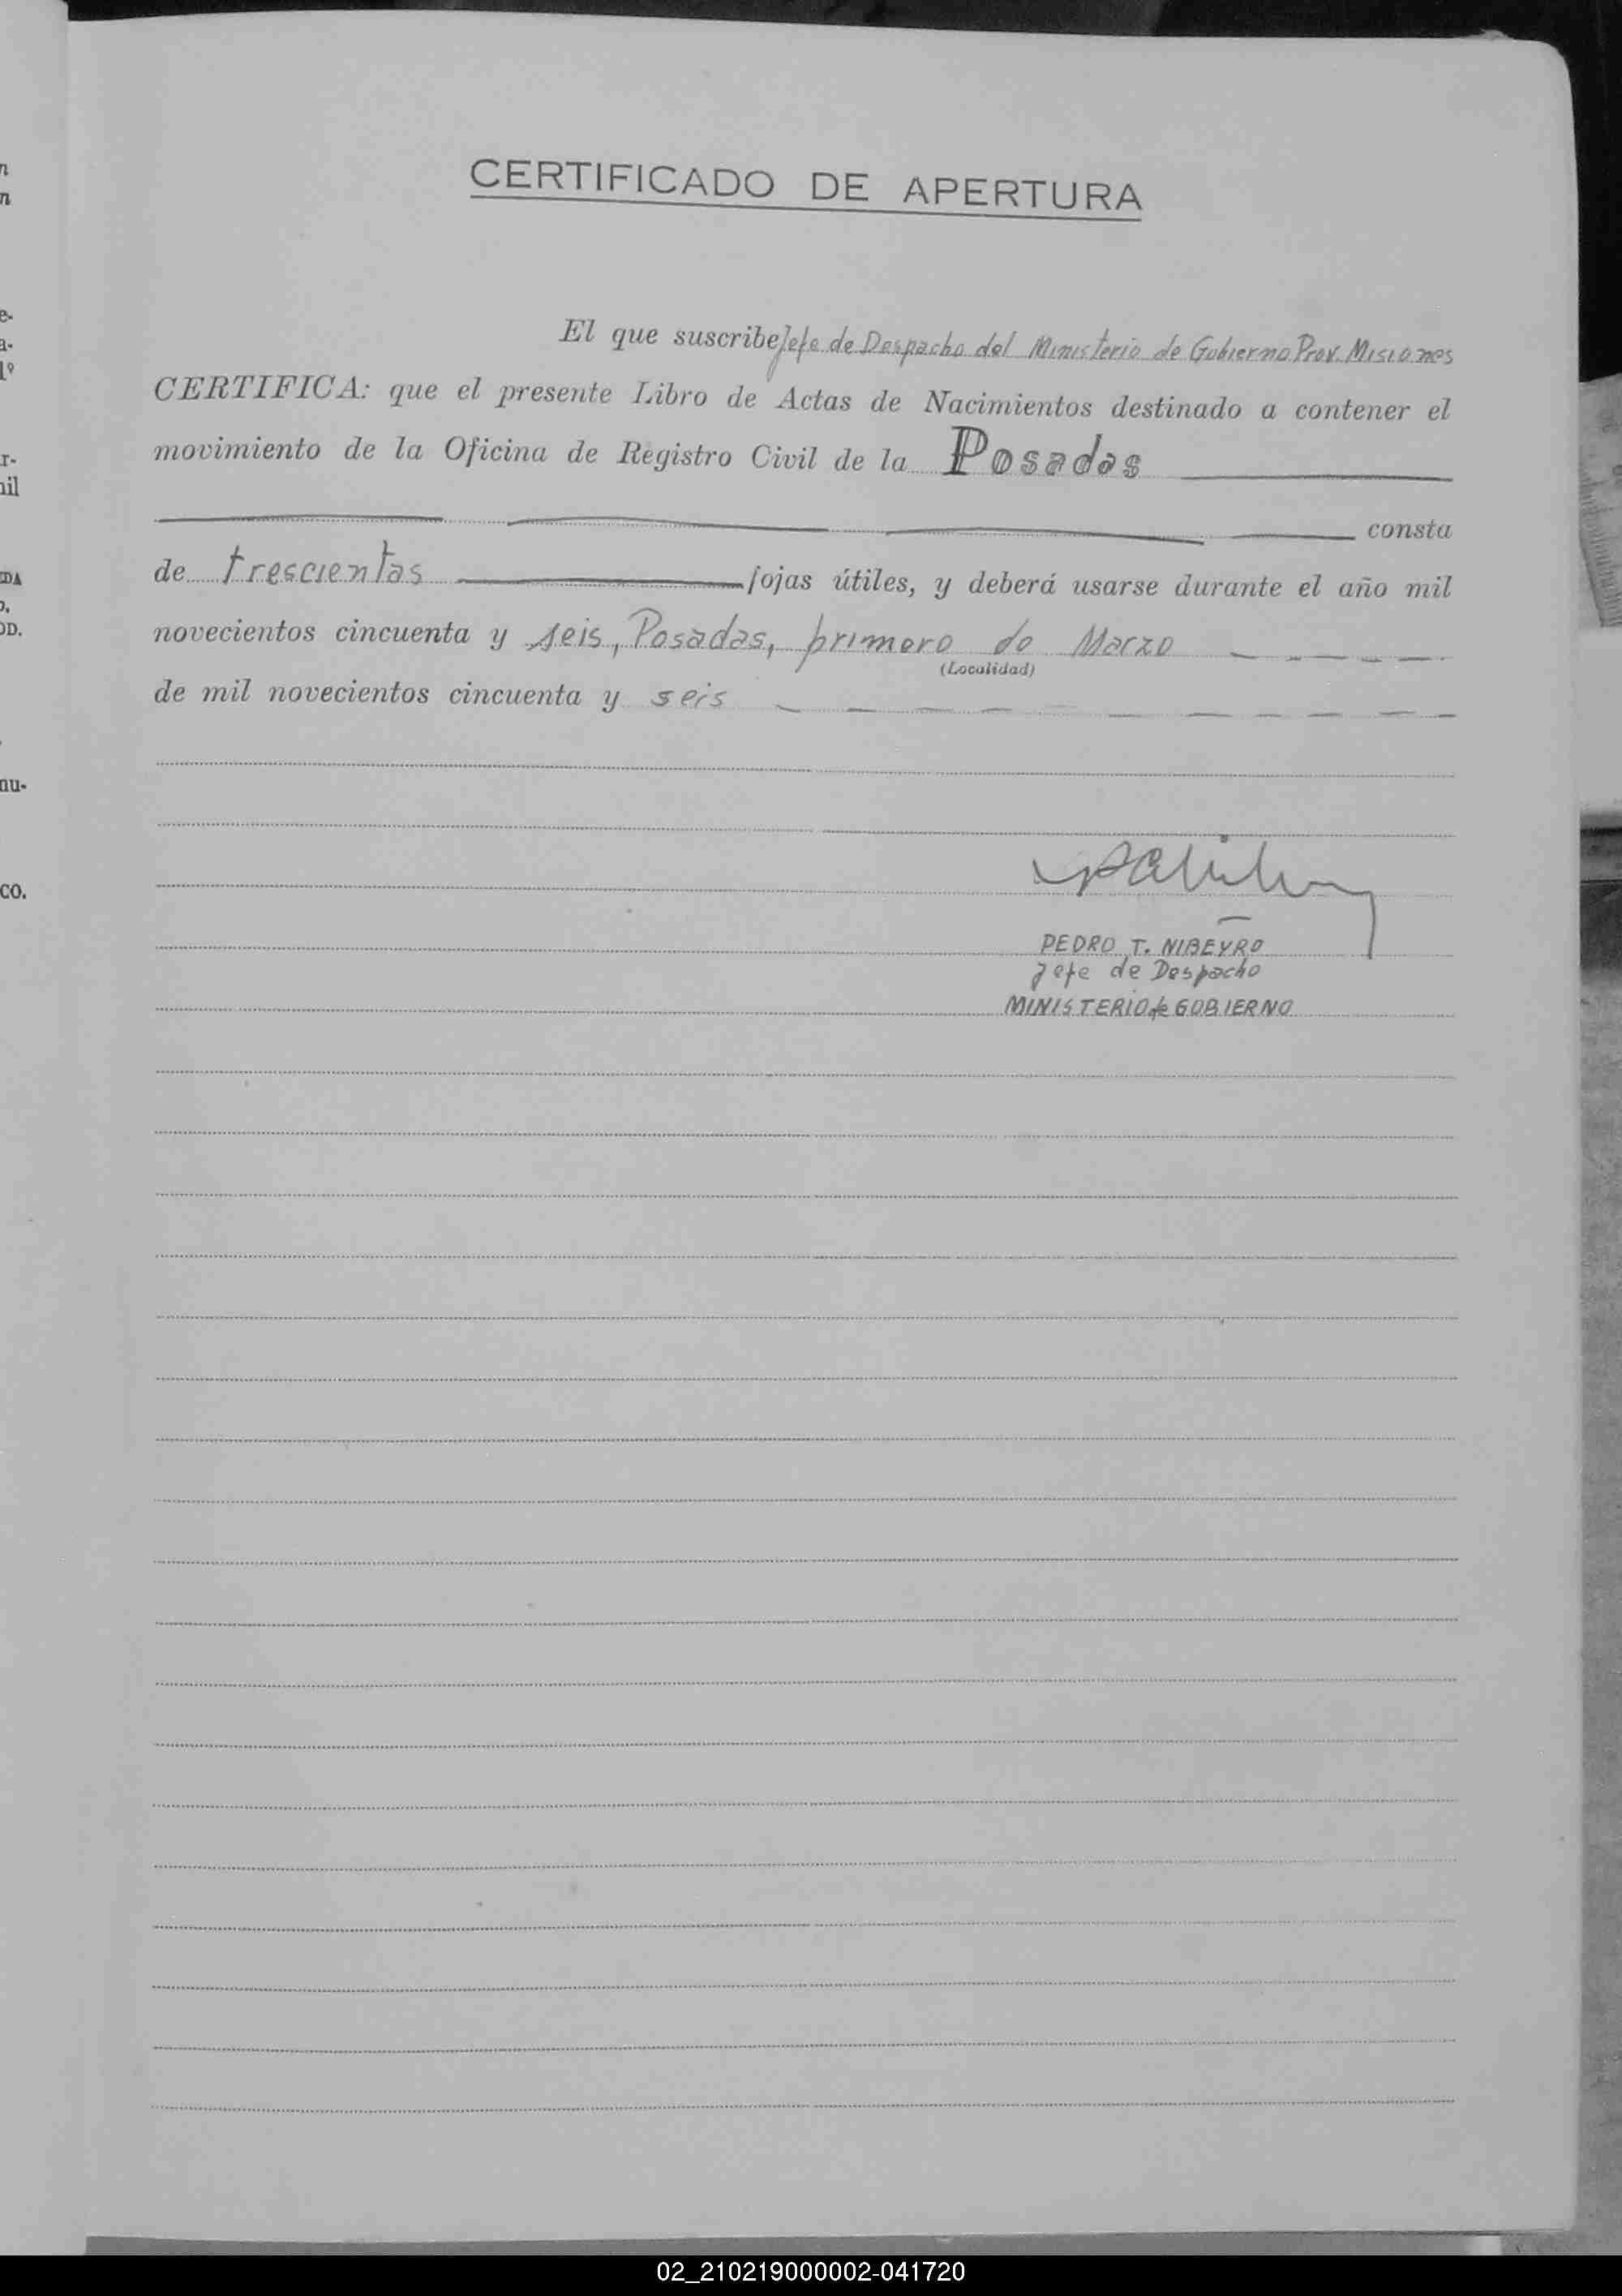 CERTIFICADO DE APERTURA
El que suscribe Jefe de Despacho del Ministerio de Gobierno Prov. Misiones
CERTIFICA: que el presente Libro de Actas de Nacimientos destinado a contener el
movimiento de la Oficina de Registro Civil de la Posadas
consta
de trescientas fojas útiles, y deberá usarse durante el año mil
novecientos cincuenta y seis, Posadas, primero de Marzo
(Localidad)
de mil novecientos cincuenta y seis
PEDRO T. NIBEYRO
Jefe de Despacho
MINISTERIO de GOBIERNO
02_210219000002-041720